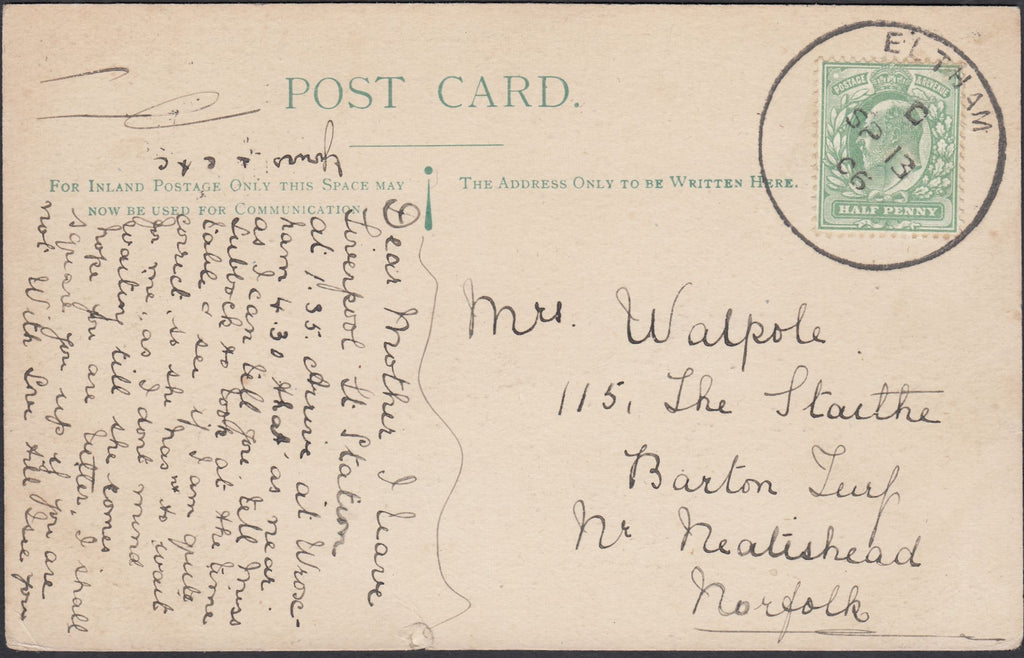 POST CARD.
FOR INLAND POSTAGE ONLY THIS SPACE MAY
NOW BE USED FOR COMMUNICATION.
THE ADDRESS ONLY TO BE WRITTEN HERE.
ELTHAM
D
SP 13
06
POSTAGE & REVENUE
HALF PENNY
Dear Mother I leave
Liverpool St Station
at 1.35. Arrive at Wrox-
ham 4.30 that as near
as I can tell you. tell Miss
Lubbock to look at the time
table & see if I am quite
correct. so she has nt to wait
for me, as I dont mind
waiting till she comes
hope you are better, I shall
square you up if you are
not With Love till I see you
Yours
Mrs. Walpole
115, The Staithe
Barton Turf
Nr Neatishead
Norfolk